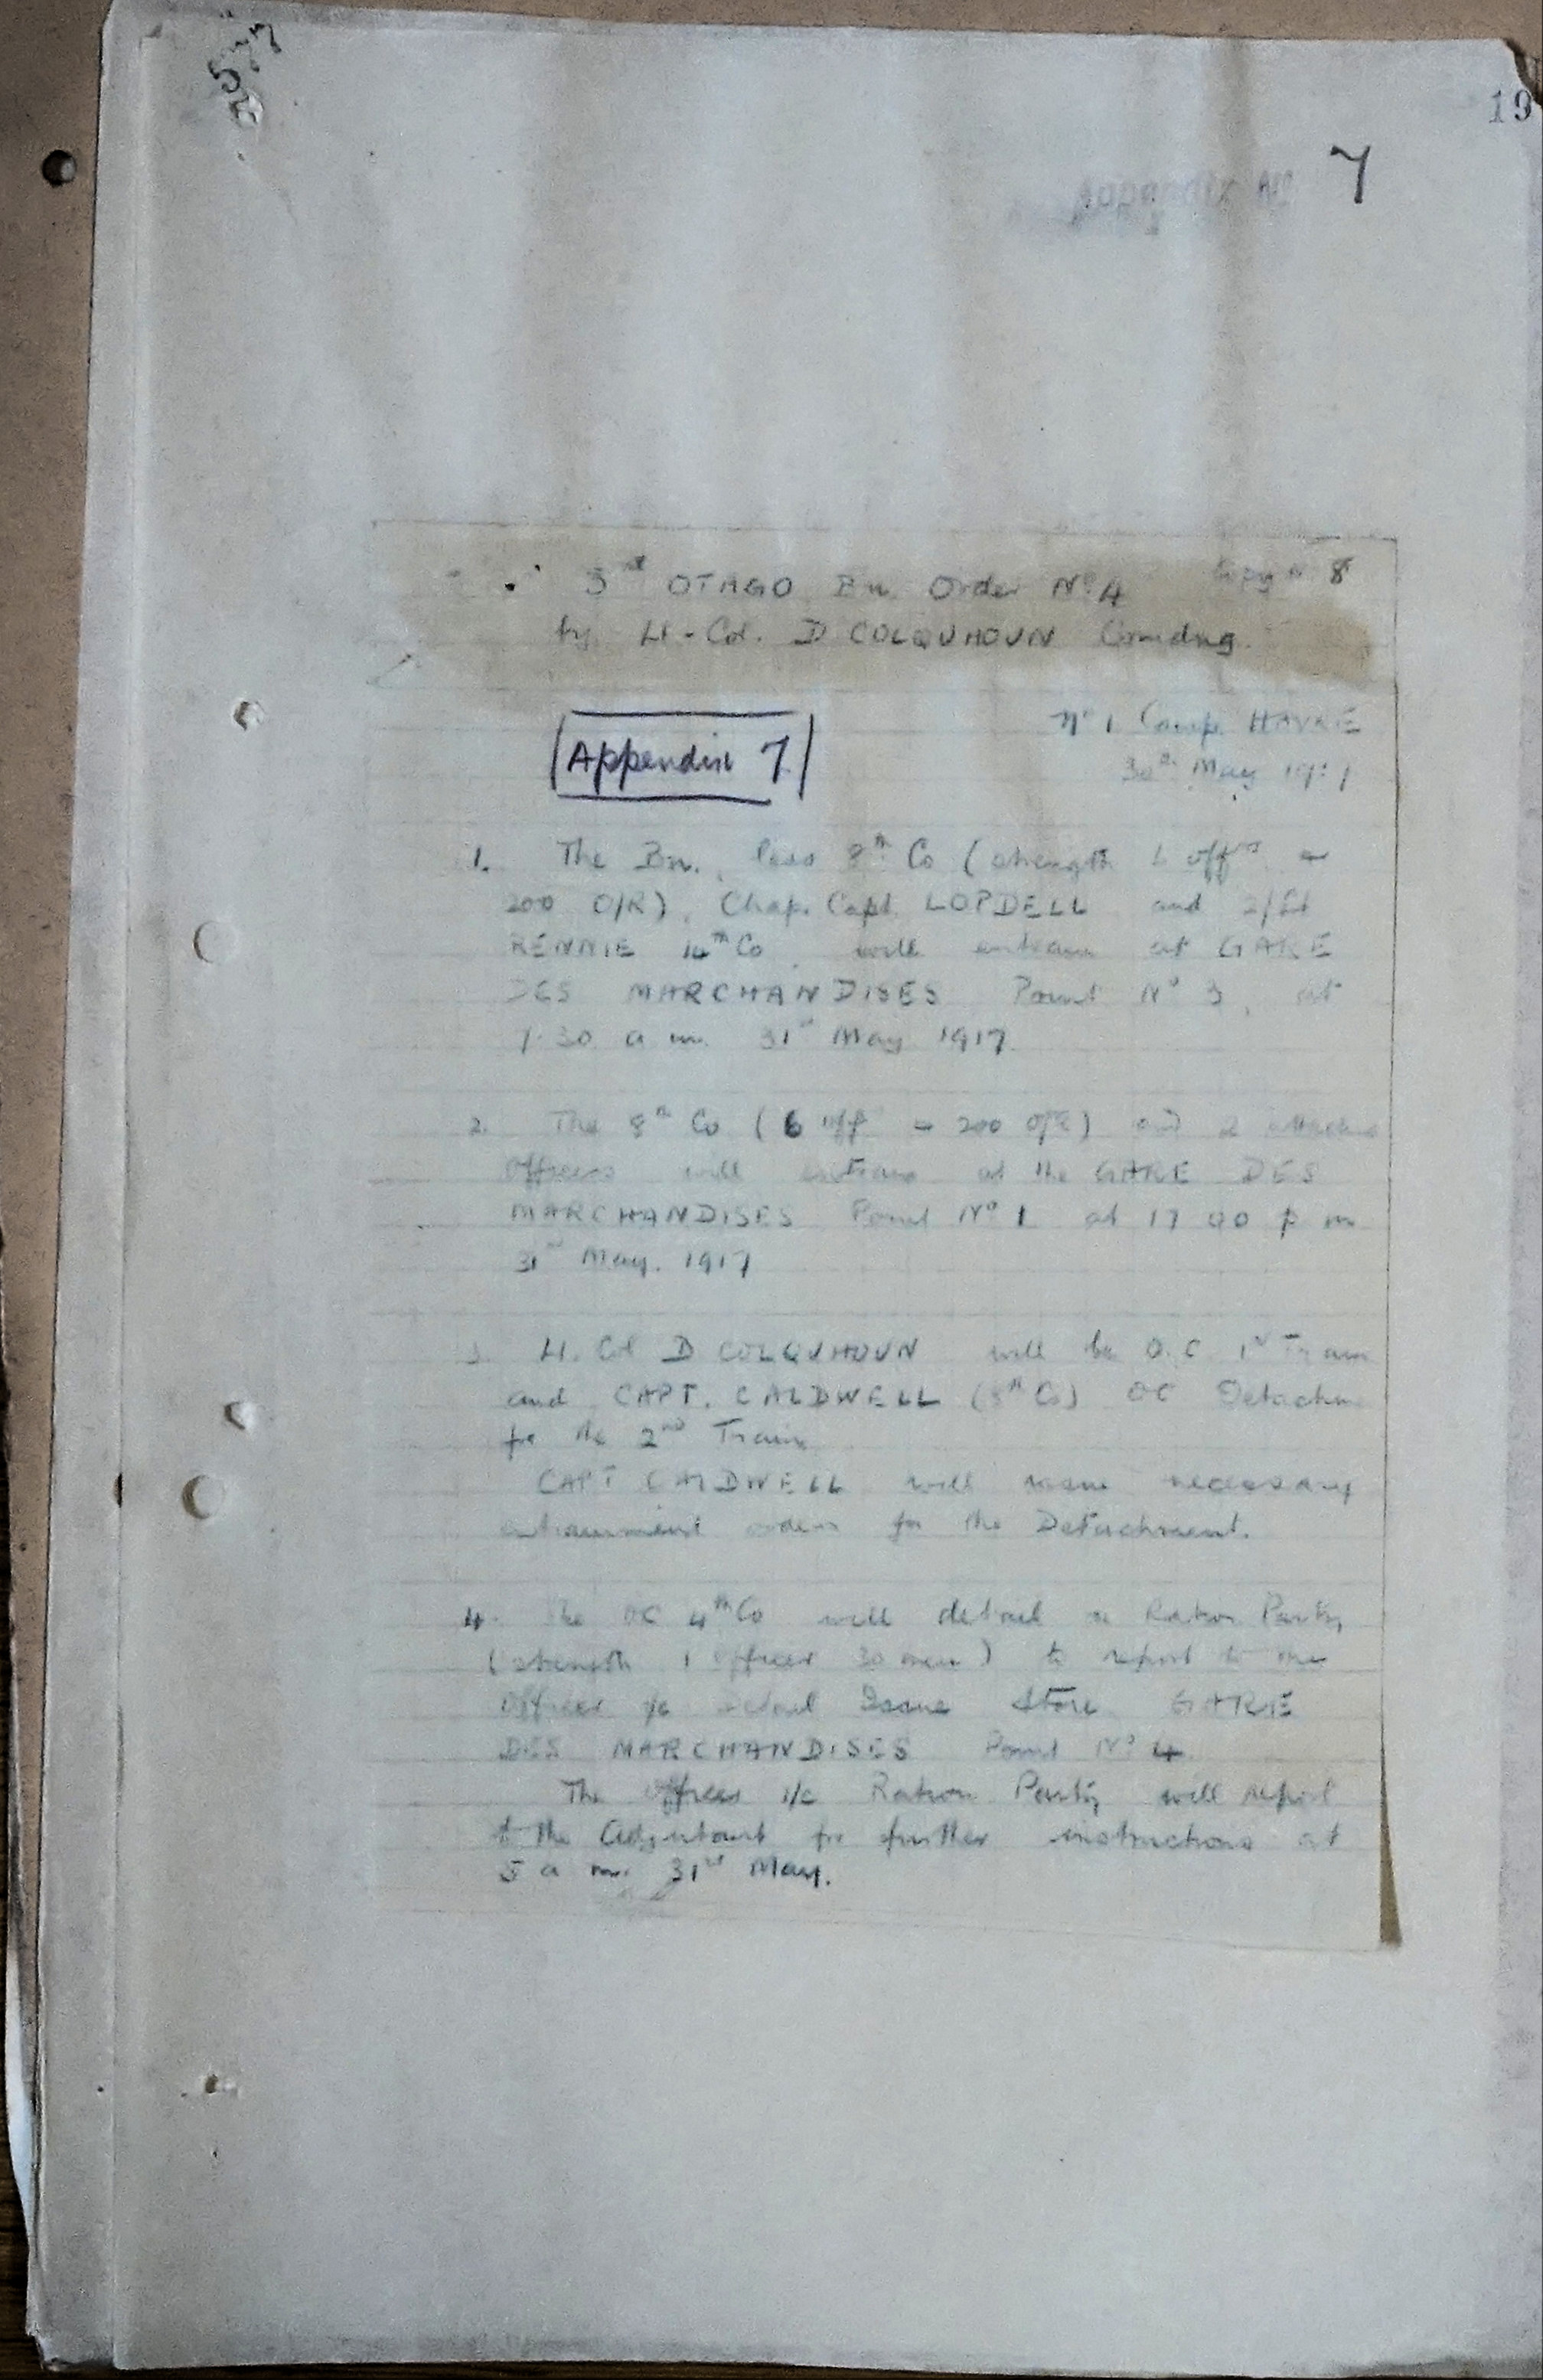 19
Appendix No 7
3rd OTAGO Bn. Order No 4 Copy No 8
by Lt-Col. D COLQUHOUN Comdng.
Appendix 7
No 1 Camp. HAVRE
30th May 1917
1. The Bn., less 8th Co (strength 6 offrs &
200 O/R), Chap. Capt. LOPDELL and 2/Lt
RENNIE 14th Co, will entrain at GARE
DES MARCHANDISES Point No 3, at
7.30 a.m. 31st May 1917.
2. The 8th Co (6 off & 200 O/R) and 2 attached
Officers will entrain at the GARE DES
MARCHANDISES Point No 1 at p m
31st May. 1917
3. Lt. Col D COLQUHOUN will be O.C. 1st Train
and CAPT. CALDWELL (8th Co) OC Detachm
for the 2nd Train
CAPT CALDWELL will issue necessary
entrainment orders for the Detachment.
4. The OC 4th Co will detail a Ration Party
(strength 1 officer 30 men) to report to the
Officer i/c Detail Issue Store GARE
DES MARCHANDISES Point No 4.
The Officer i/c Ration Party will report
to the Adjutant for further instructions at
5 a m. 31st May.